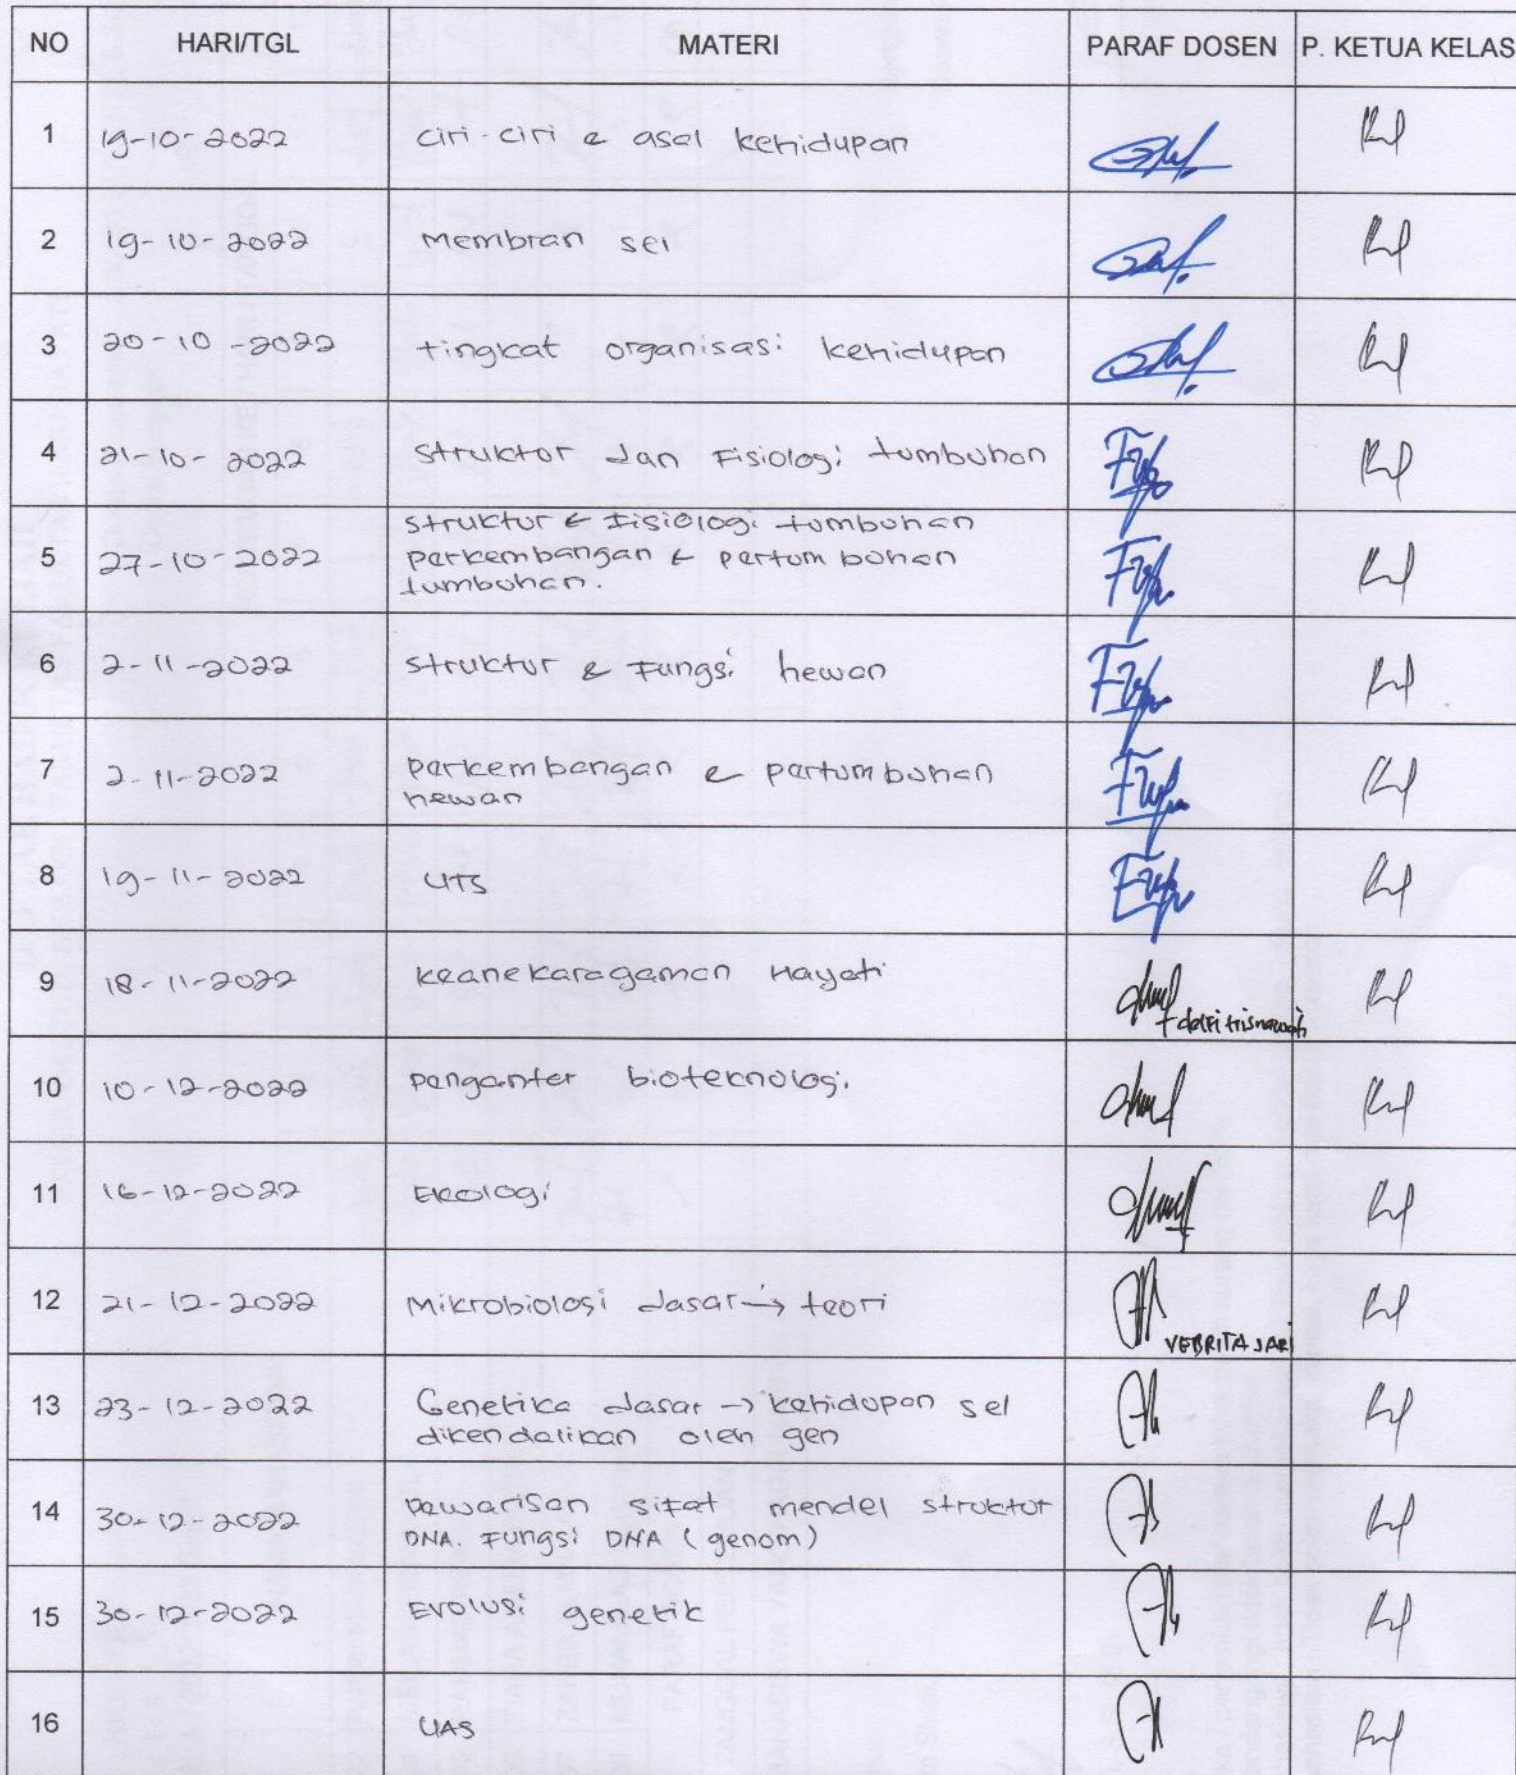 NO HARI/TGL MATERI PARAF DOSEN P. KETUA KELAS
1 19-10-2022 ciri-ciri & asal kehidupan
2 19-10-2022 Membran sel
3 20-10-2022 tingkat organisasi kehidupan
4 21-10-2022 struktur dan Fisiologi tumbuhan
5 27-10-2022 struktur & Fisiologi tumbuhan
perkembangan & pertumbuhan
tumbuhan.
6 2-11-2022 struktur & Fungsi hewan
7 2-11-2022 perkembangan & pertumbuhan
hewan
8 19-11-2022 UTS
9 18-11-2022 keanekaragaman Hayati
10 10-12-2022 pengantar bioteknologi
11 16-12-2022 Ekologi
12 21-12-2022 Mikrobiologi dasar → teori
VEBRITA SARI
13 23-12-2022 Genetika dasar → kehidupan sel
dikendalikan oleh gen
14 30-12-2022 Pewarisan sifat mendel struktur
DNA. Fungsi DNA (genom)
15 30-12-2022 Evolusi genetik
16 UAS